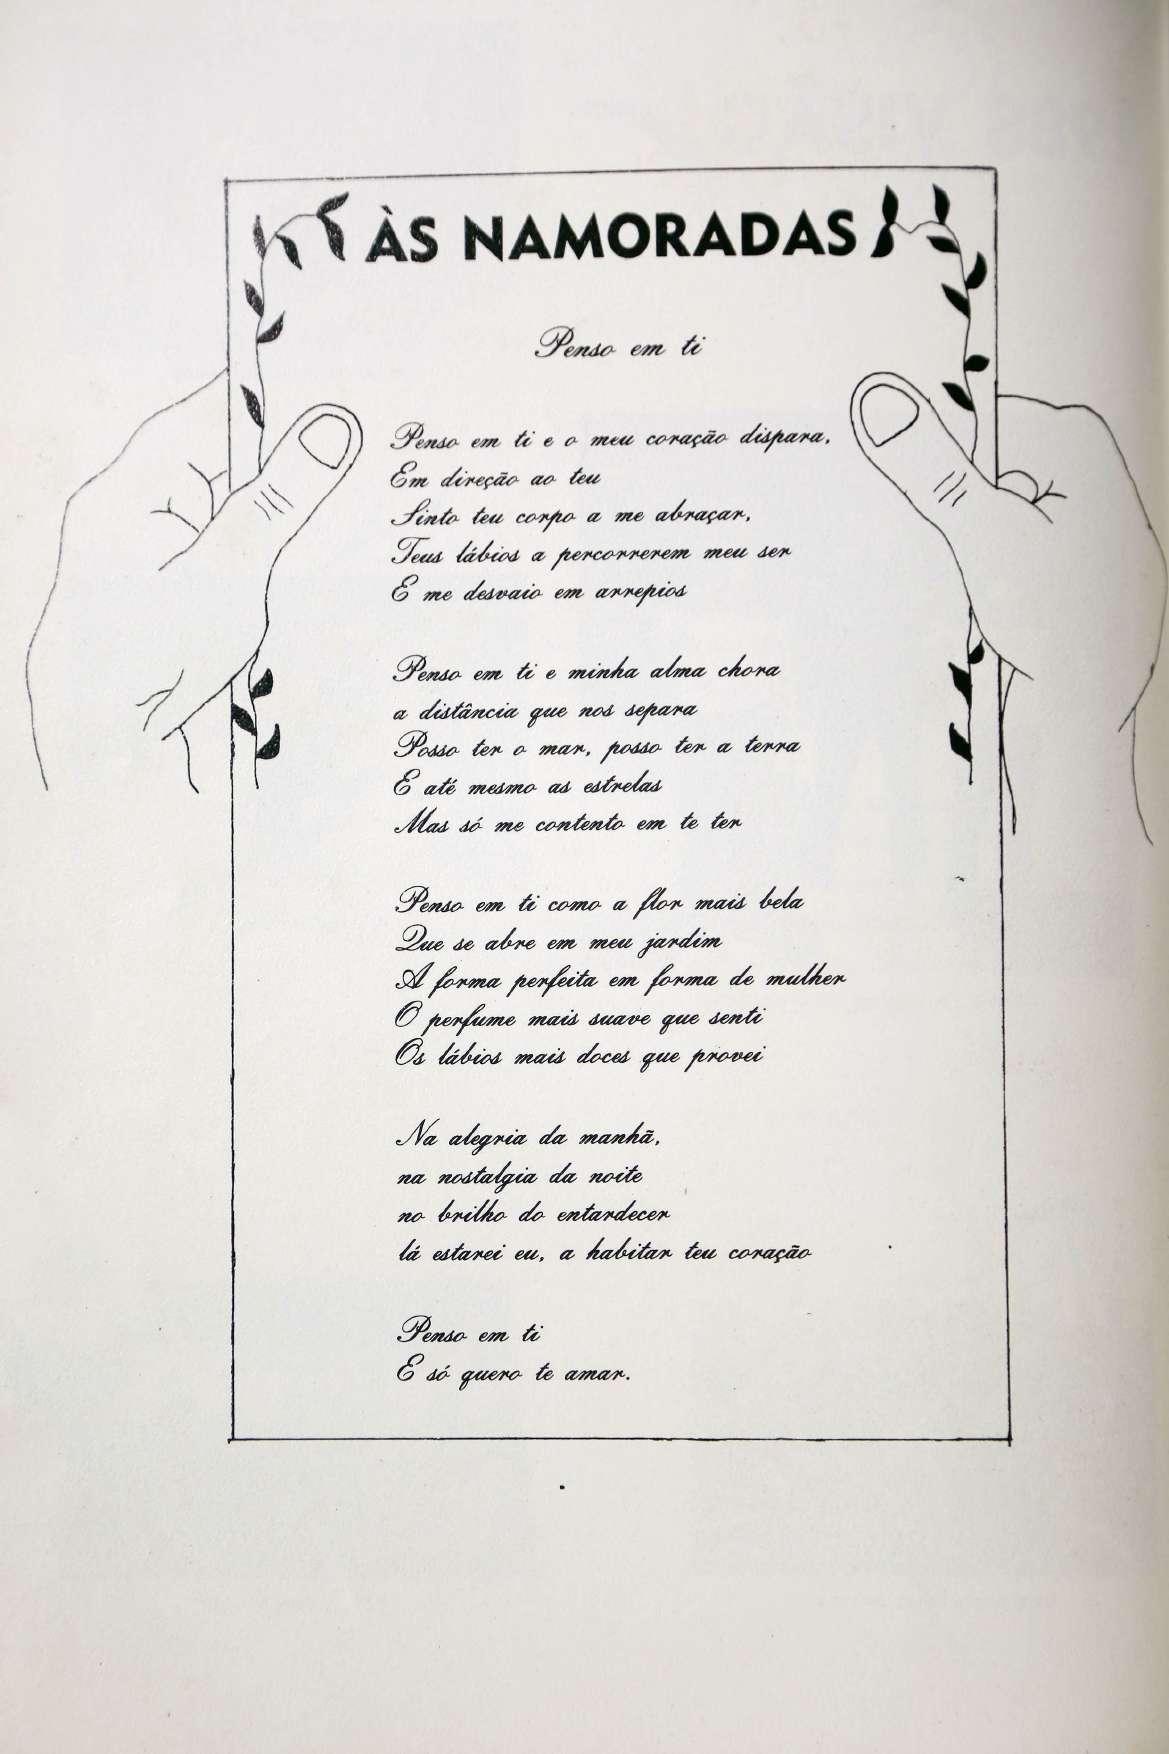 ÀS NAMORADAS
Penso em ti
Penso em ti e o meu coração dispara,
Em direção ao teu
Sinto teu corpo a me abraçar,
Teus lábios a percorrerem meu ser
E me desvaio em arrepios
Penso em ti e minha alma chora
a distância que nos separa
Posso ter o mar, posso ter a terra
E até mesmo as estrelas
Mas só me contento em te ter
Penso em ti como a flor mais bela
Que se abre em meu jardim
A forma perfeita em forma de mulher
O perfume mais suave que senti
Os lábios mais doces que provei
Na alegria da manhã,
na nostalgia da noite
no brilho do entardecer
lá estarei eu, a habitar teu coração
Penso em ti
E só quero te amar.